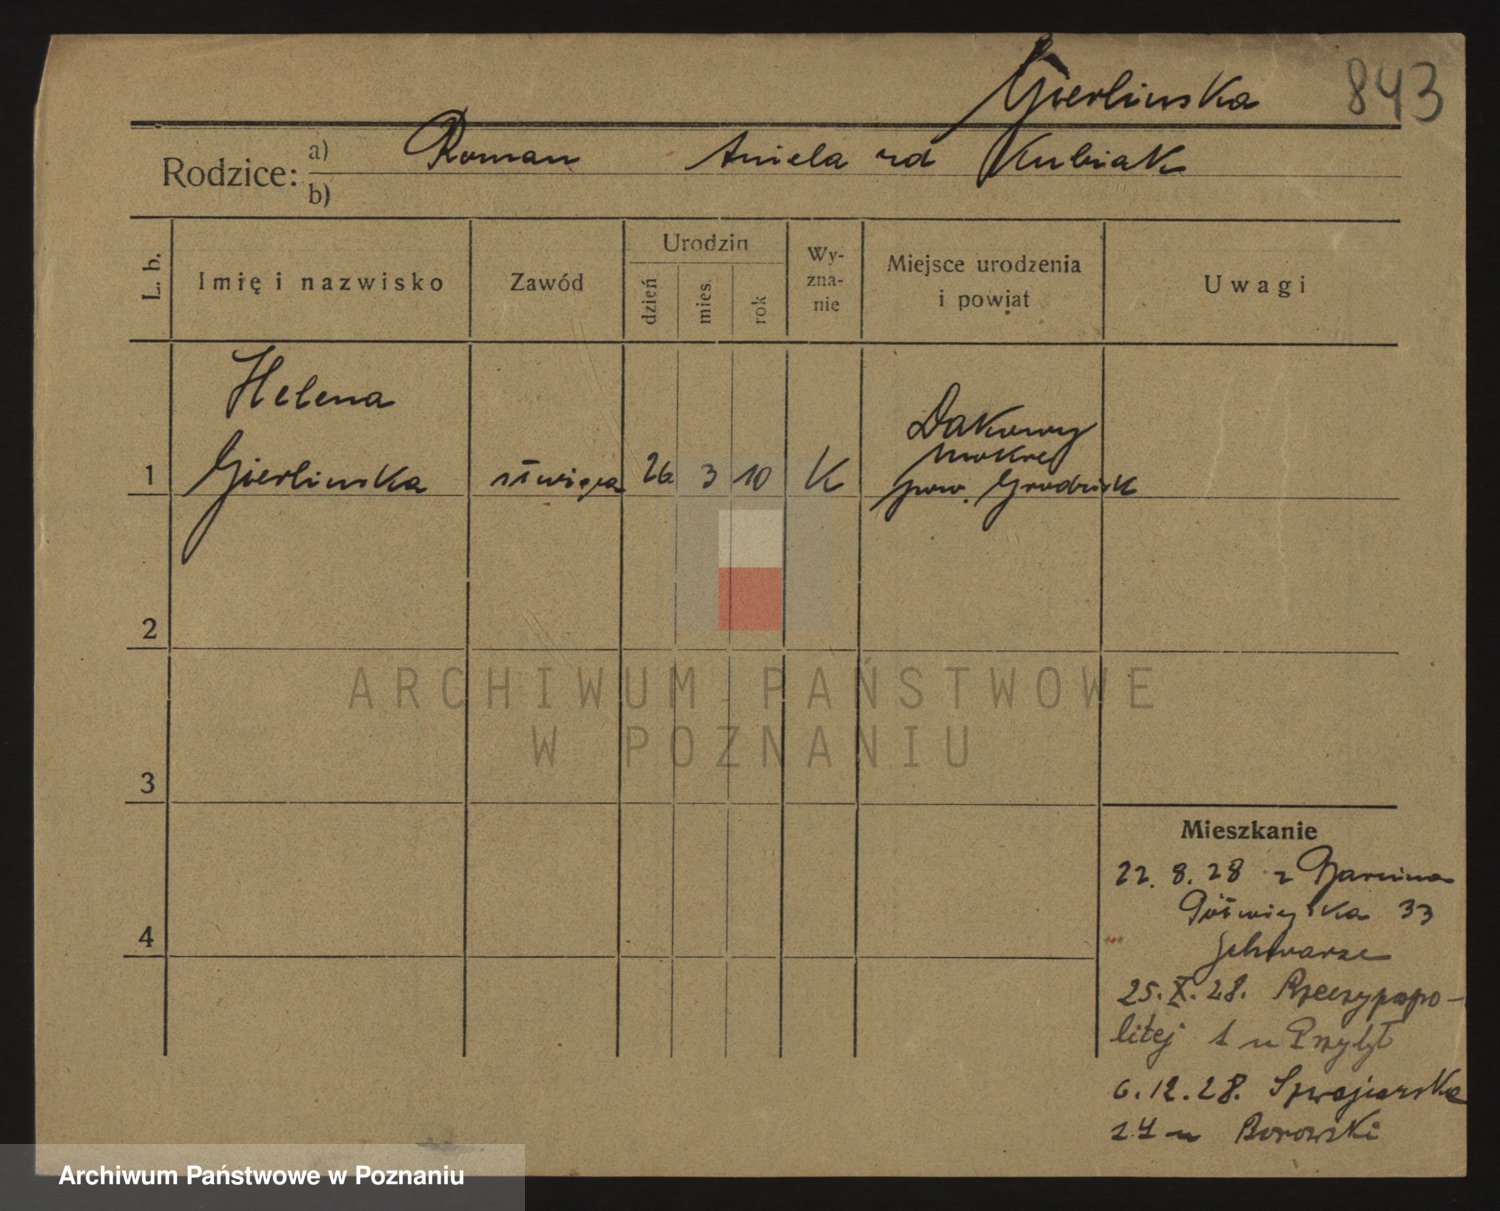 Gierlinska 843
Rodzice: a) Roman Aniela rd Kubiak
b)
L. b. Imię i nazwisko Zawód Urodzin dzień mies. rok Wy-zna-nie Miejsce urodzenia i powiat Uwagi
Helena
Dakowy
mokre
1 Gierlinska służąca 26 3 10 K pow. Grodzisk
2
ARCHIWUM PAŃSTWOWE
W POZNANIU
3
Mieszkanie
22. 8. 28 z Barcina
Półwiejska 33
4
Schwarze
25. X. 28. Rzeczypospo-
litej 1 u Przybył
6. 12. 28. Szwajcarska
14 u Borowski
Archiwum Państwowe w Poznaniu